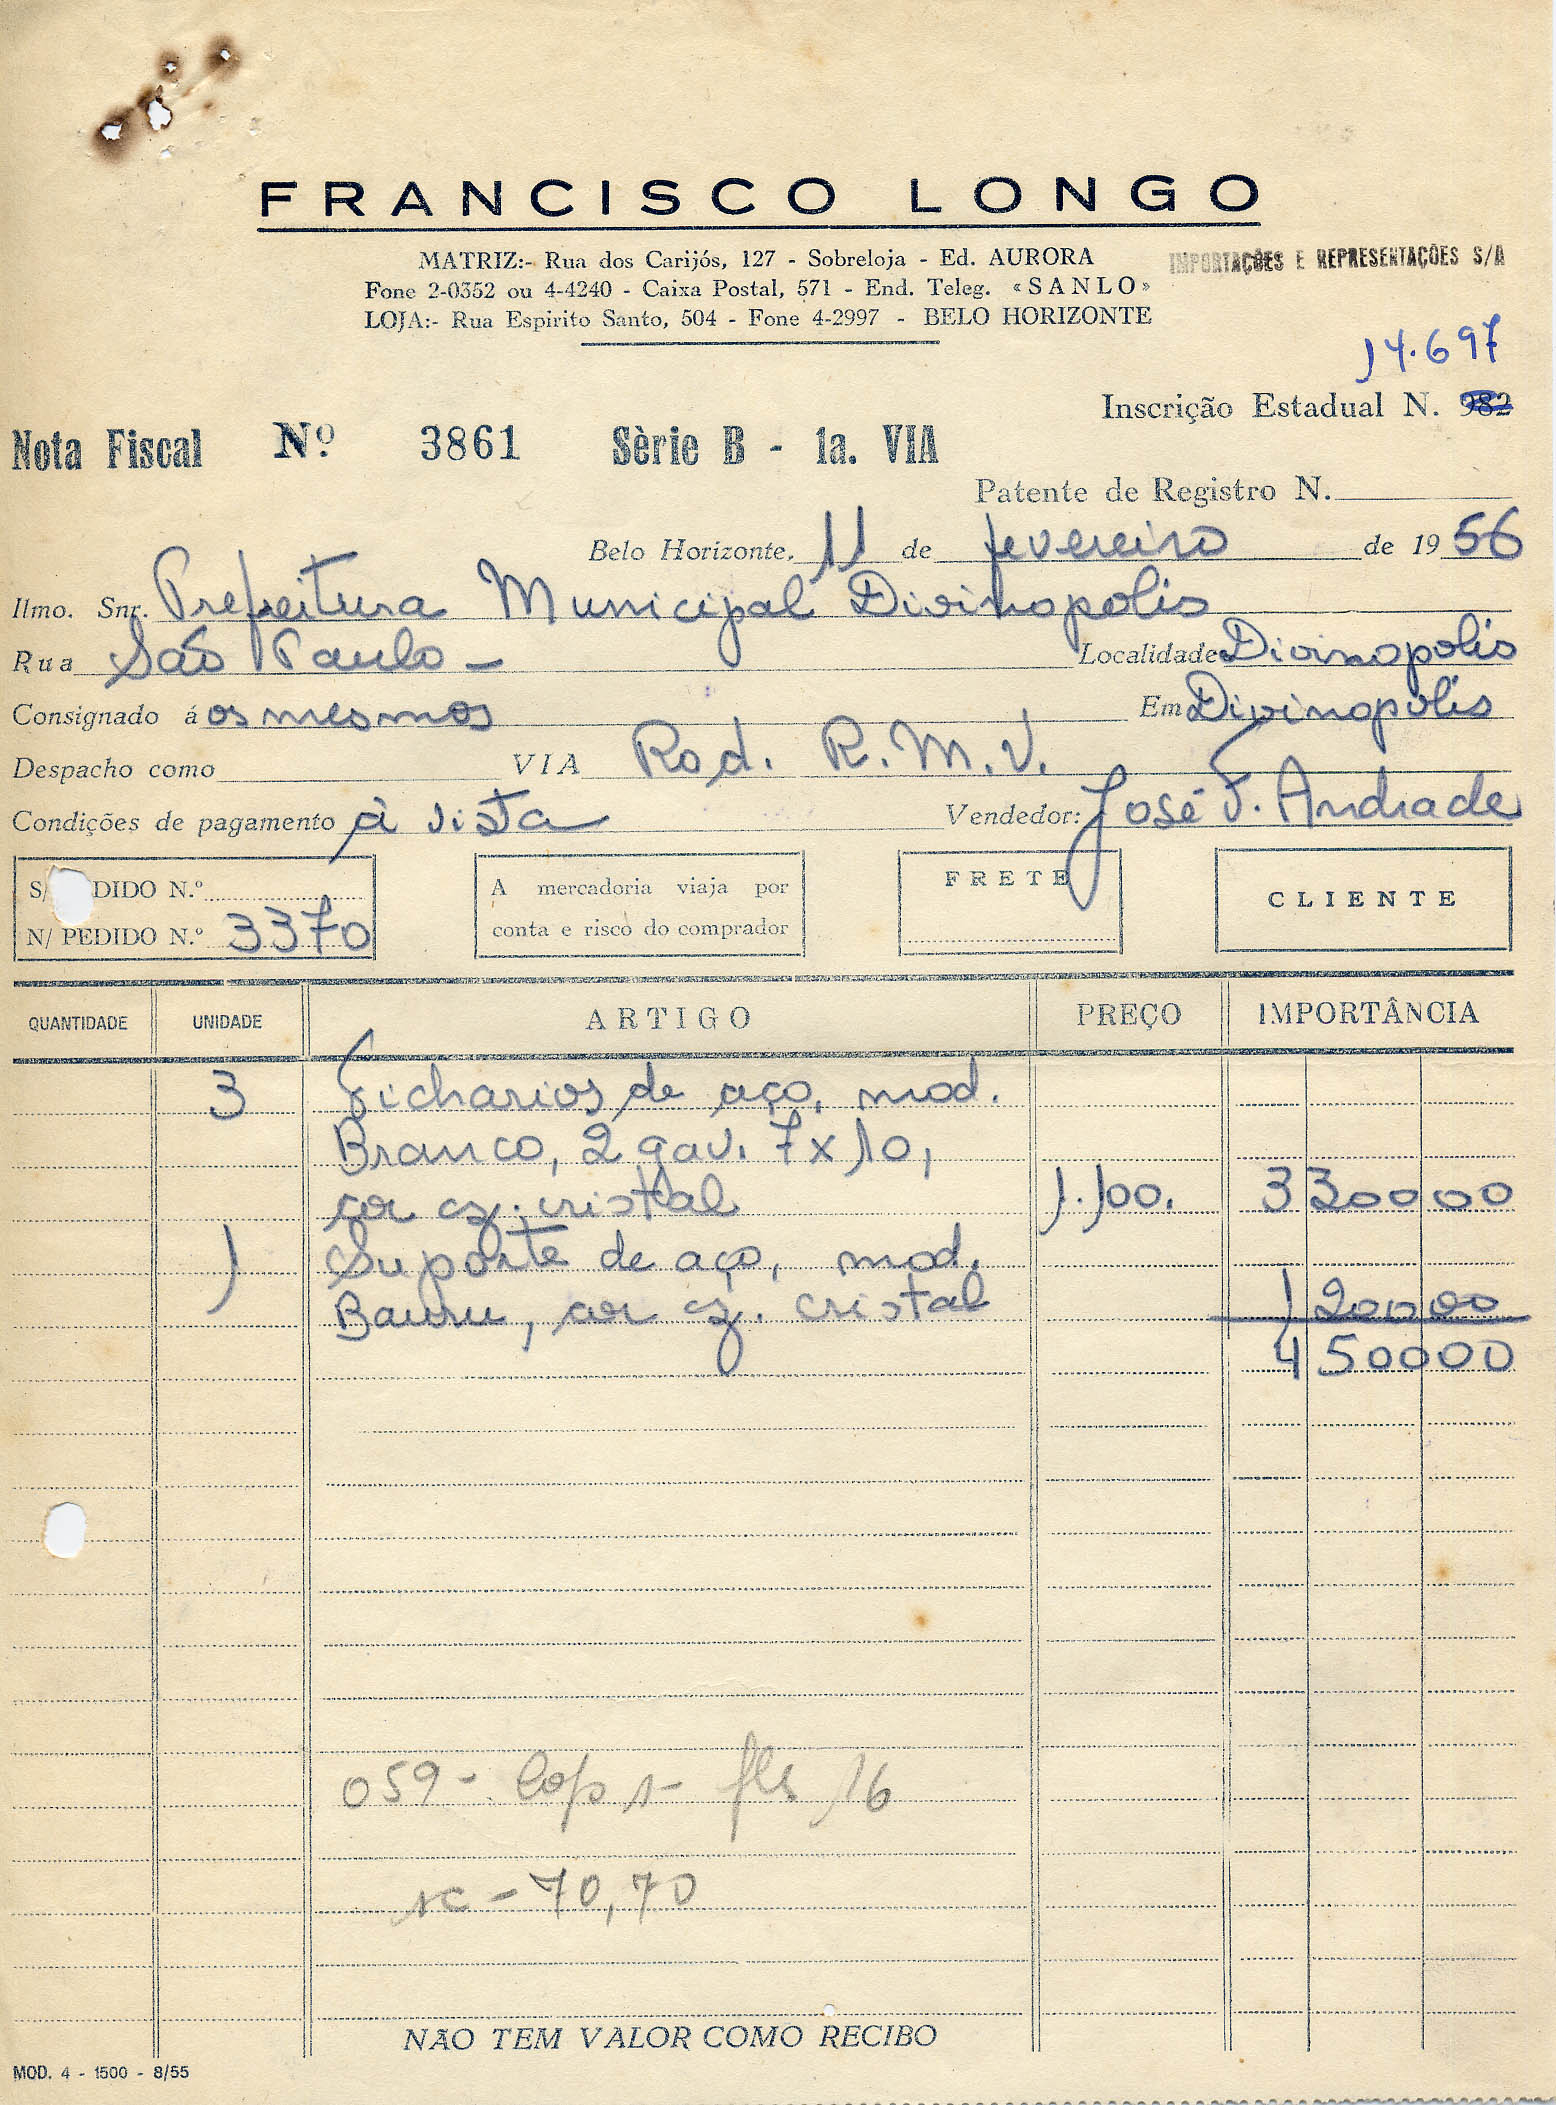 FRANCISCO LONGO
MATRIZ:- Rua dos Carijós, 127 - Sobreloja - Ed. AURORA
IMPORTAÇÕES E REPRESENTAÇÕES S/A
Fone 2-0352 ou 4-4240 - Caixa Postal, 571 - End. Teleg. «SANLO»
LOJA:- Rua Espirito Santo, 504 - Fone 4-2997 - BELO HORIZONTE
14.697
Inscrição Estadual N. 982
Nota Fiscal Nº 3861 Sèrie B - 1a. VIA
Patente de Registro N.
Belo Horizonte, 11 de fevereiro de 1956
Ilmo. Snr. Prefeitura Municipal Divinopolis
Rua São Paulo - Localidade Divinopolis
Consignado á os mesmos Em Divinopolis
Despacho como VIA Rod. R.M.V.
Condições de pagamento à vista Vendedor: José F. Andrade
S/ DIDO N.º
N/ PEDIDO N.º 3370
A mercadoria viaja por
conta e risco do comprador
FRETE
CLIENTE
QUANTIDADE UNIDADE ARTIGO PREÇO IMPORTÂNCIA
3 Ficharios de aço, mod.
Branco, 2 gav. 7x10,
cor cz. cristal 1.100. 3 300 00
1 Suporte de aço, mod.
Bauru, cor cz. cristal 1 200 00
4 500 00
059 - fls 16
- 70,70
NÃO TEM VALOR COMO RECIBO
MOD. 4 - 1500 - 8/55